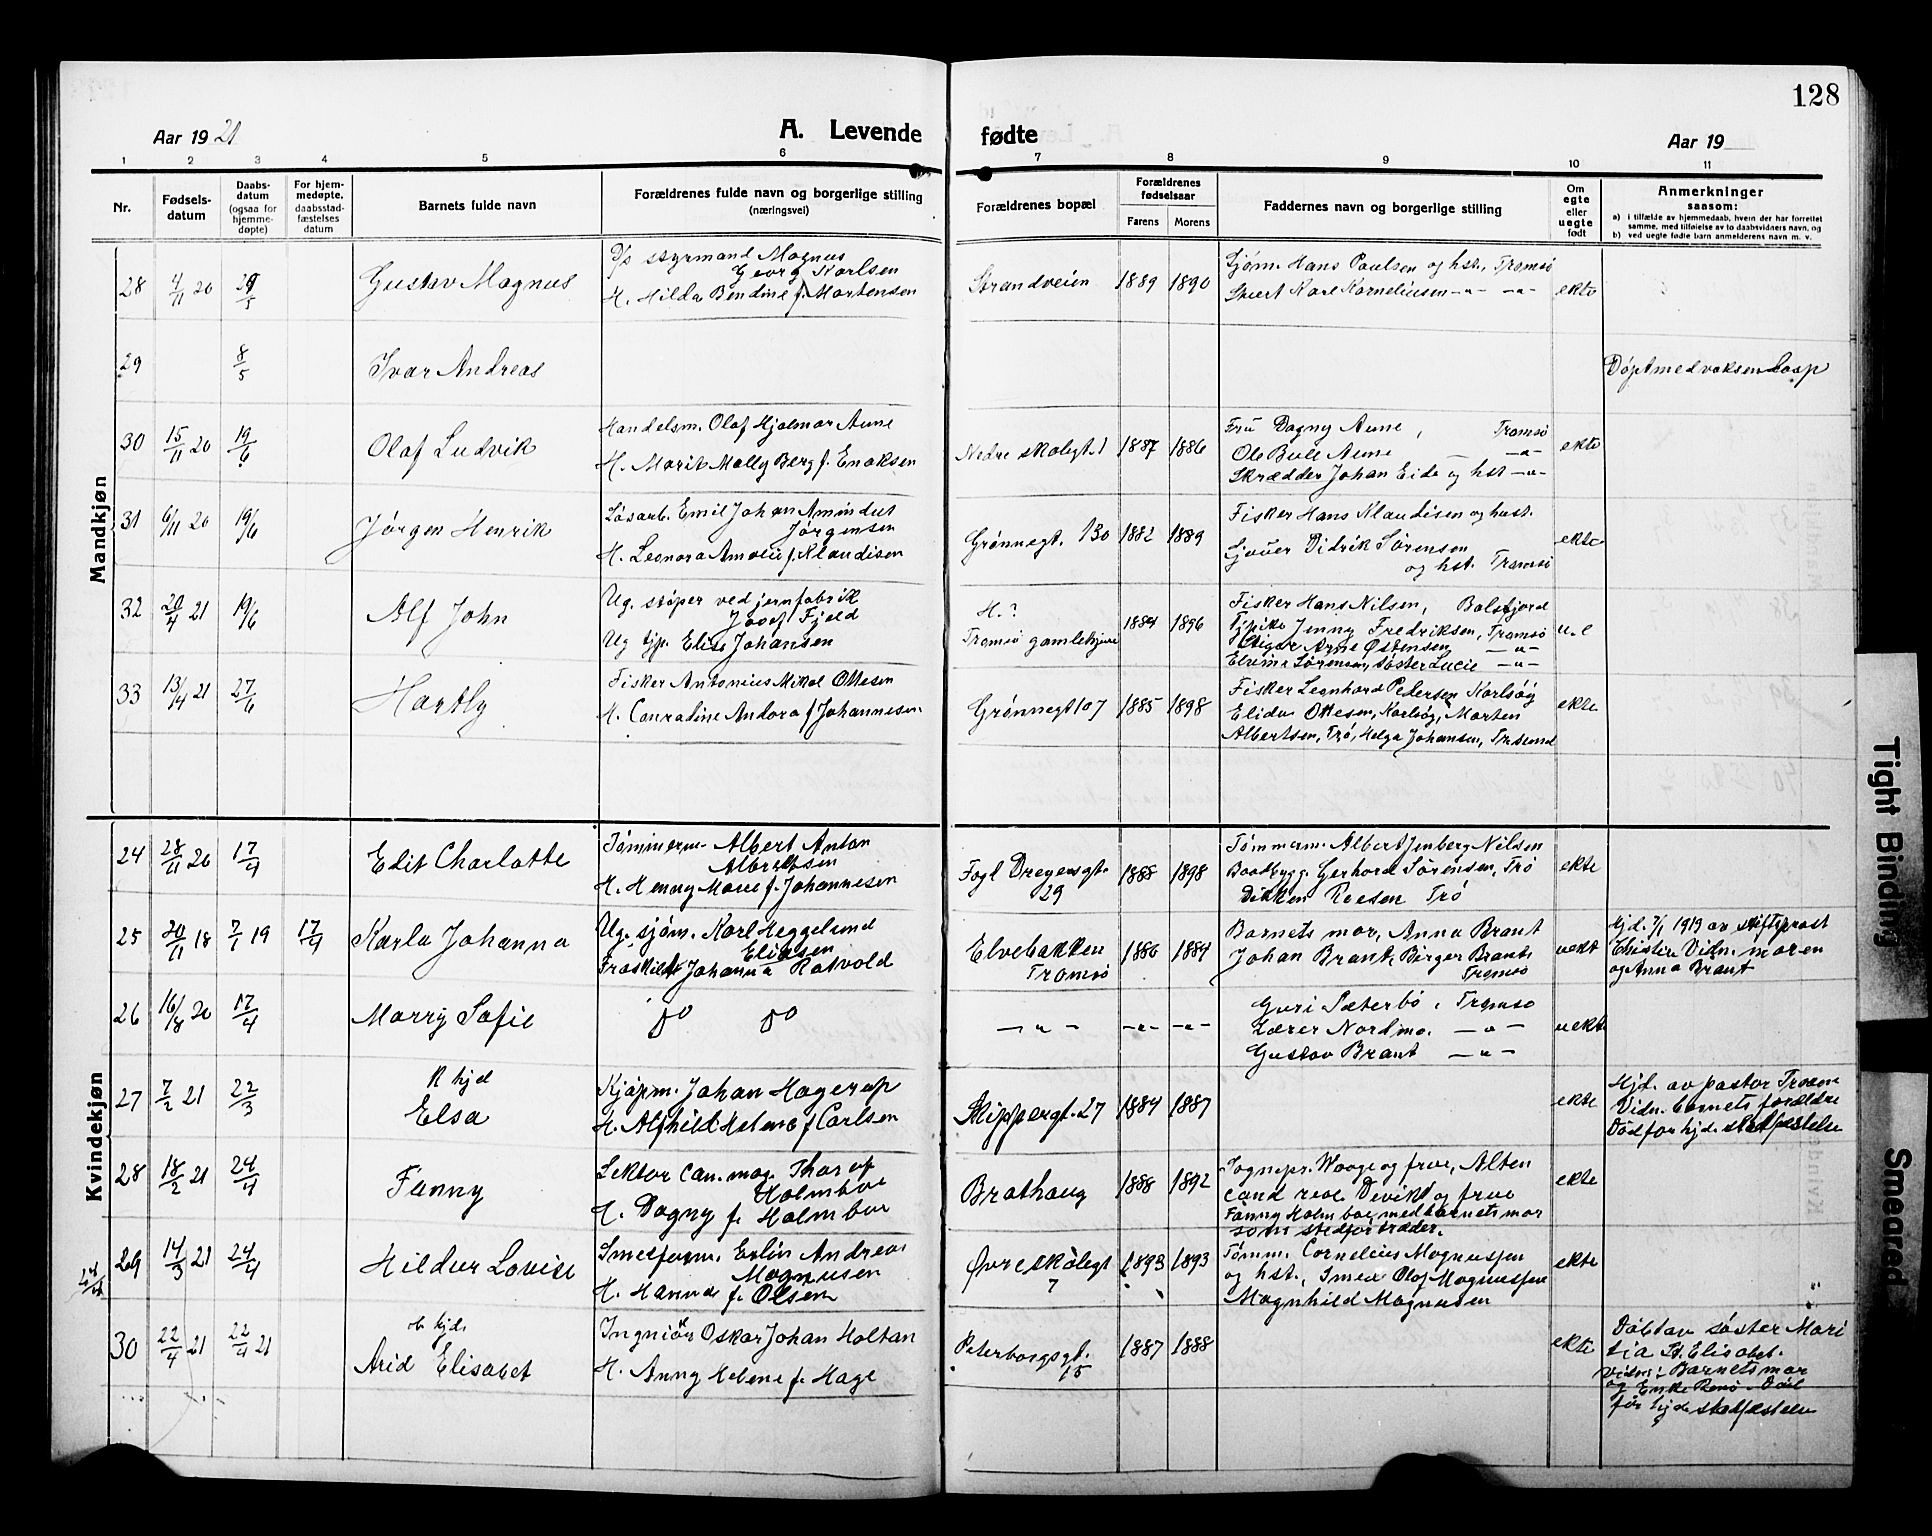 128
Aar 1921
A. Levende fødte
Aar 19
1 2 3 4 5 6 7 8 9 10 11
Nr.
Fødsels-
datum
Daabs-
datum
(ogsaa for
hjemme-
døpte)
For hjem-
medøpte,
daabsstad-
fæstelses
datum
Barnets fulde navn
Forældrenes fulde navn og borgerlige stilling
(næringsvei)
Forældrenes bopæl
Forældrenes
fødselsaar
Farens Morens
Faddernes navn og borgerlige stilling
Om
egte
eller
uegte
født
Anmerkninger
saasom:
a) i tilfælde av hjemmedaab, hvem der har forrettet
samme, med tilføielse av to daabsvidners navn, og
b) ved uegte fødte barn anmelderens navn m. v.
Mandkjøn
28 4/11 20 29/5 Gustav Magnus
styrmand Magnus
Georg Karlsen
H. Hilda Bendine f. Martensen
Strandveien 1889 1890
Sjøm. Hans Paulsen og hst. Tromsø
Karl Korneliussen -"- -"-
ekte
29 8/5 Ivar Andreas
Døpt med voksen daap
30 15/11 20 19/6 Olaf Ludvik
Handelsm. Olaf Hjalmar Aune
H. Marit Molly Berg f. Enoksen
Nedre skolegt. 1 1887 1886
Fru Dagny Aune, Tromsø
Ole Aune -"-
Skrædder Johan Eide og hst -"-
ekte
31 6/11 20 19/6 Jørgen Henrik
Løsarb. Emil Johan Amindus
Jørgensen
H. Leonora Amalie f. Klaudisen
Grønnegt. 130 1882 1889
Fisker Hans Klaudisen og hust.
Sjauer Didrik Sørensen
og hst. Tromsø
ekte
32 20/4 21 19/6 Alf John
Ug. støper ved jernfabrik
Josef Fjeld
Ug tjp. Elise Johansen
H.?
Tromsø gamlehjem
1884 1896
Fisker Hans Nilsen, Balsfjord
Tjpike Jenny Fredriksen, Tromsø
Arne Østensen -"-
Sørensen, søster Lucie -"-
u.e
33 13/4 21 27/6 Hartly
Fisker Antonius Mikal Ottesen
H. Conradine Andora f Johannesen
Grønnegt 107 1885 1898
Fisker Leonhard Pedersen Karlsøy
Elida Ottesen, Karlsøy, Morten
Albertsen, Trø, Helga Johansen,
ekte
Kvindekjøn
24 28/11 20 17/4 Edit Charlotte
Tømmerm. Albert Anton
Albrektsen
H. Henny Marie f. Johannesen
Fogd Dreyersgt.
29
1888 1898
Tømmerm. Albert Jenberg Nilsen
Baatbygg. Gerhard Sørensen, Trø
Trø
ekte
25 20/11 18 7/1 19 17/4 Karla Johanna
Ug. sjøm. Karl Heggelund
Eliasen
Fraskilt Johanna Ratvold
Elvebakken
Tromsø
1886 1884
Barnets mor, Anna Brant
Johan Brant, Birger Brant
Tromsø
uekt
Hjd. 7/1 1919 av stiftsprost
Vidn. moren
og Anna Brant
26 16/8 20 17/4 Marry Sofie
do do
-"- -"- -"-
Guri Sæterbø, Tromsø
Lærer Nordmo. -"-
Gustav Brant -"-
uekt
27 7/2 21 22/3 hjd
Elsa
Kjøpm. Johan Hagerup
H. Alfhild Helene f Carlsen
Skippergt. 27 1884 1887
ekte
Hjd. av pastor
Vidn. barnets forældre
Død før hjd. stadfæstelse
28 18/2 21 24/4 Fanny
Lektor can. mag. Thorolf
Holmboe
H. Dagny f. Holmboe
Brathaug 1888 1892
Sognepr. Waage og frue, Alten
cand real Devik og frue
Fanny Holmboe, med barnets mor
som stedfortræder.
ekte
29 14/3 21 24/4 Hildur Lovise
Andreas
Magnusen
H. Hanna f. Olsen
Øvre skolegt
7
1893 1893
Tømm. Cornelius Magnussen
og hst., Smed Olaf Magnussen
Magnhild Magnusen
ekte
30 22/4 21 22/4 21 hjd.
Arid Elisabet
Ingniør Oskar Johan Holtan
H. Anny Helene f. Hage
Peterborgsgt.
15
1887 1888
ekte
Døbt av søster Mari
tia St. Elisabet.
Vidn: Barnets mor
og Død
før hjd. stadfæstelse
Tight Binding
Smeared